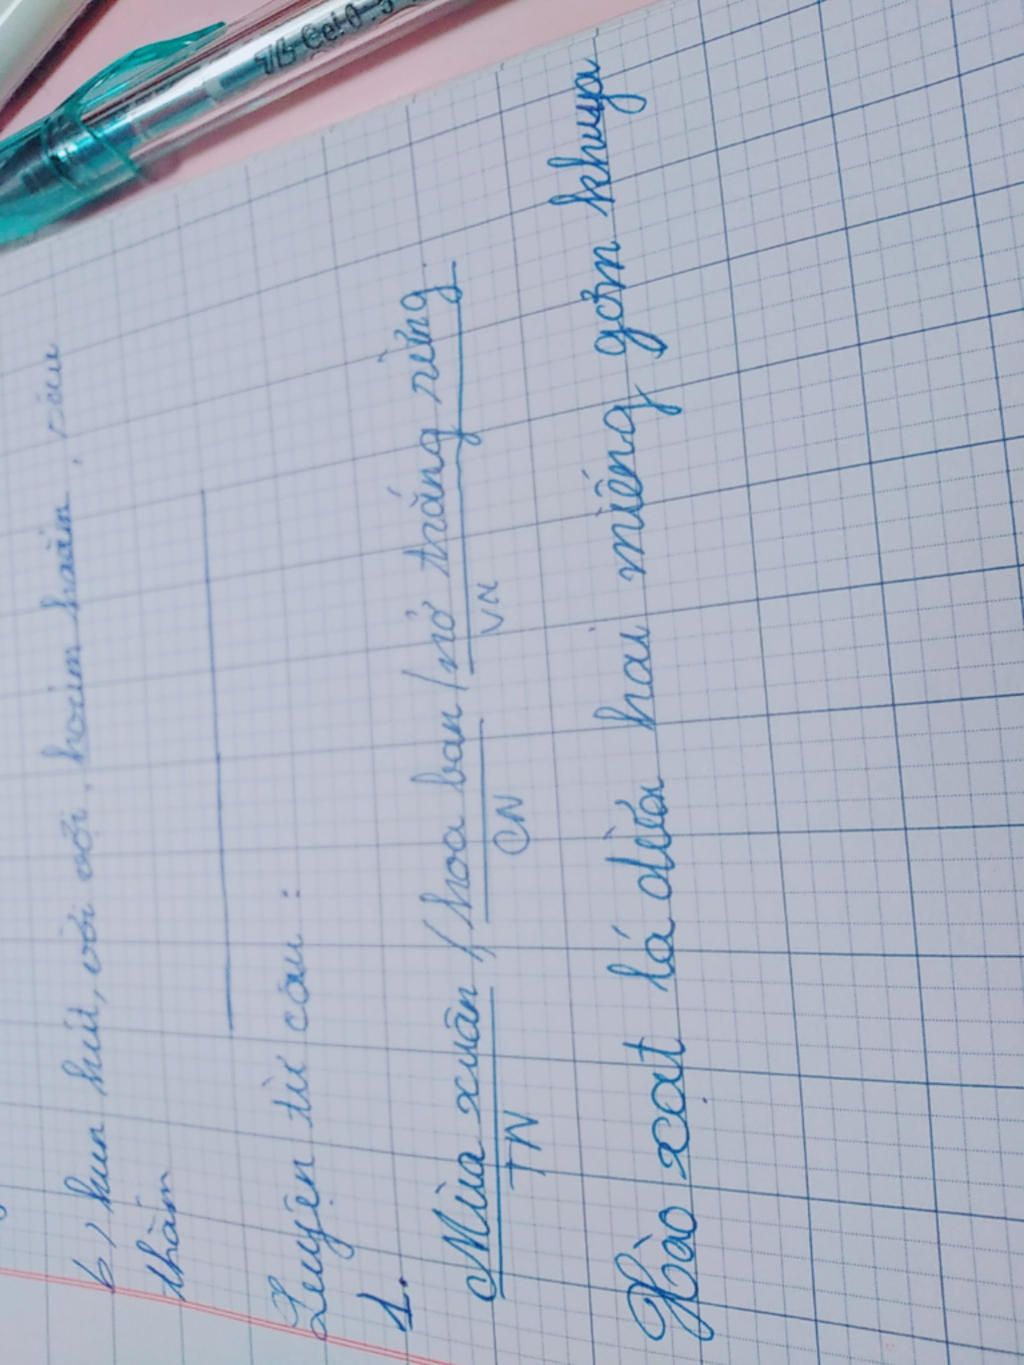 Gel 0.5
b, hun hút, vời vợi, hoàm hoàm, sâu
thẳm
Luyện từ câu :
1.
Mùa xuân / hoa ban / nở trắng rừng.
TN CN VN
Hào xoạt lá dưới hai miếng gơm khuya